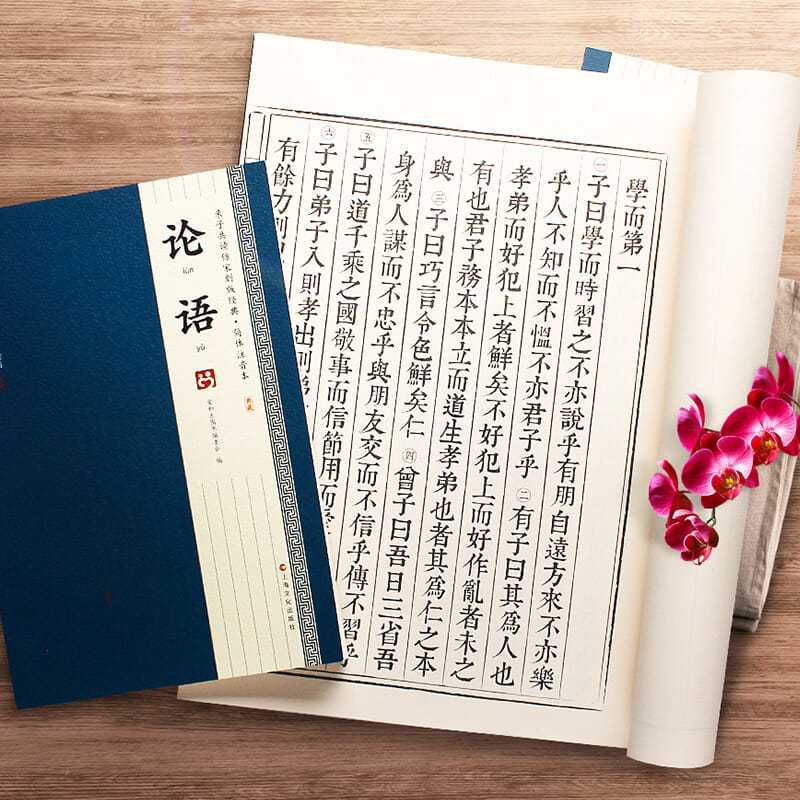 學而第一
㊀子曰學而時習之不亦說乎有朋自遠方來不亦樂
乎人不知而不慍不亦君子乎㊁有子曰其爲人也
孝弟而好犯上者鮮矣不好犯上而好作亂者未之
有也君子務本本立而道生孝弟也者其爲仁之本
與㊂子曰巧言令色鮮矣仁㊃曾子曰吾日三省吾
身爲人謀而不忠乎與朋友交而不信乎傳不習乎
㊄子曰道千乘之國敬事而信節用而
㊅子曰弟子入則孝出則弟
有餘力則
亲子共读传家刻版经典·简体注音本
论语
lún yǔ
典藏
编
上海文化出版社